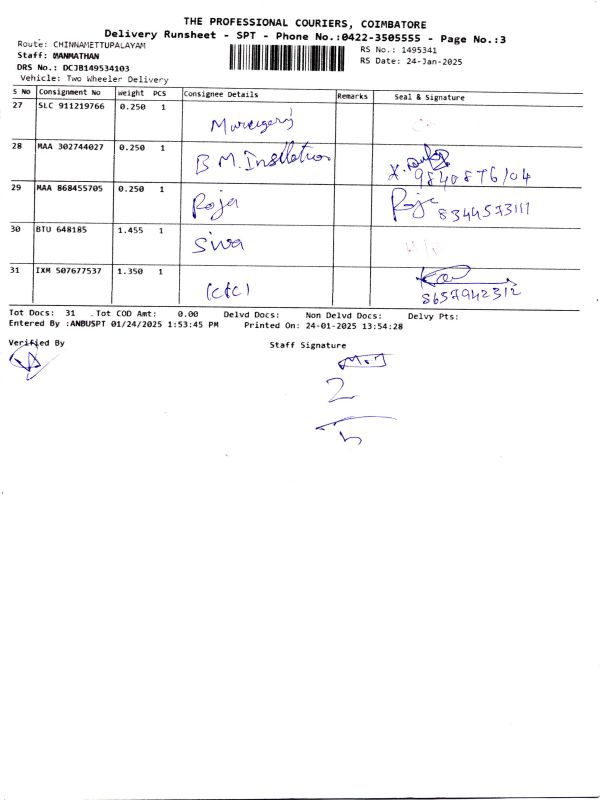 THE PROFESSIONAL COURIERS, COIMBATORE
Delivery Runsheet - SPT - Phone No.:0422-3505555 - Page No.:3
Route: CHINNAMETTUPALAYAM
RS No.: 1495341
Staff: MANMATHAN
RS Date: 24-Jan-2025
DRS No.: DCJB149534103
Vehicle: Two Wheeler Delivery
S No Consignment No Weight PCS Consignee Details Remarks Seal & Signature
27 SLC 911219766 0.250 1
28 MAA 302744027 0.250 1 B M.
29 MAA 868455705 0.250 1 Roja Roja 8344573111
30 BTU 648185 1.455 1 Siva
31 IXM 507677537 1.350 1 8657942312
Tot Docs: 31 .Tot COD Amt: 0.00 Delvd Docs: Non Delvd Docs: Delvy Pts:
Entered By :ANBUSPT 01/24/2025 1:53:45 PM Printed On: 24-01-2025 13:54:28
Verified By Staff Signature
2